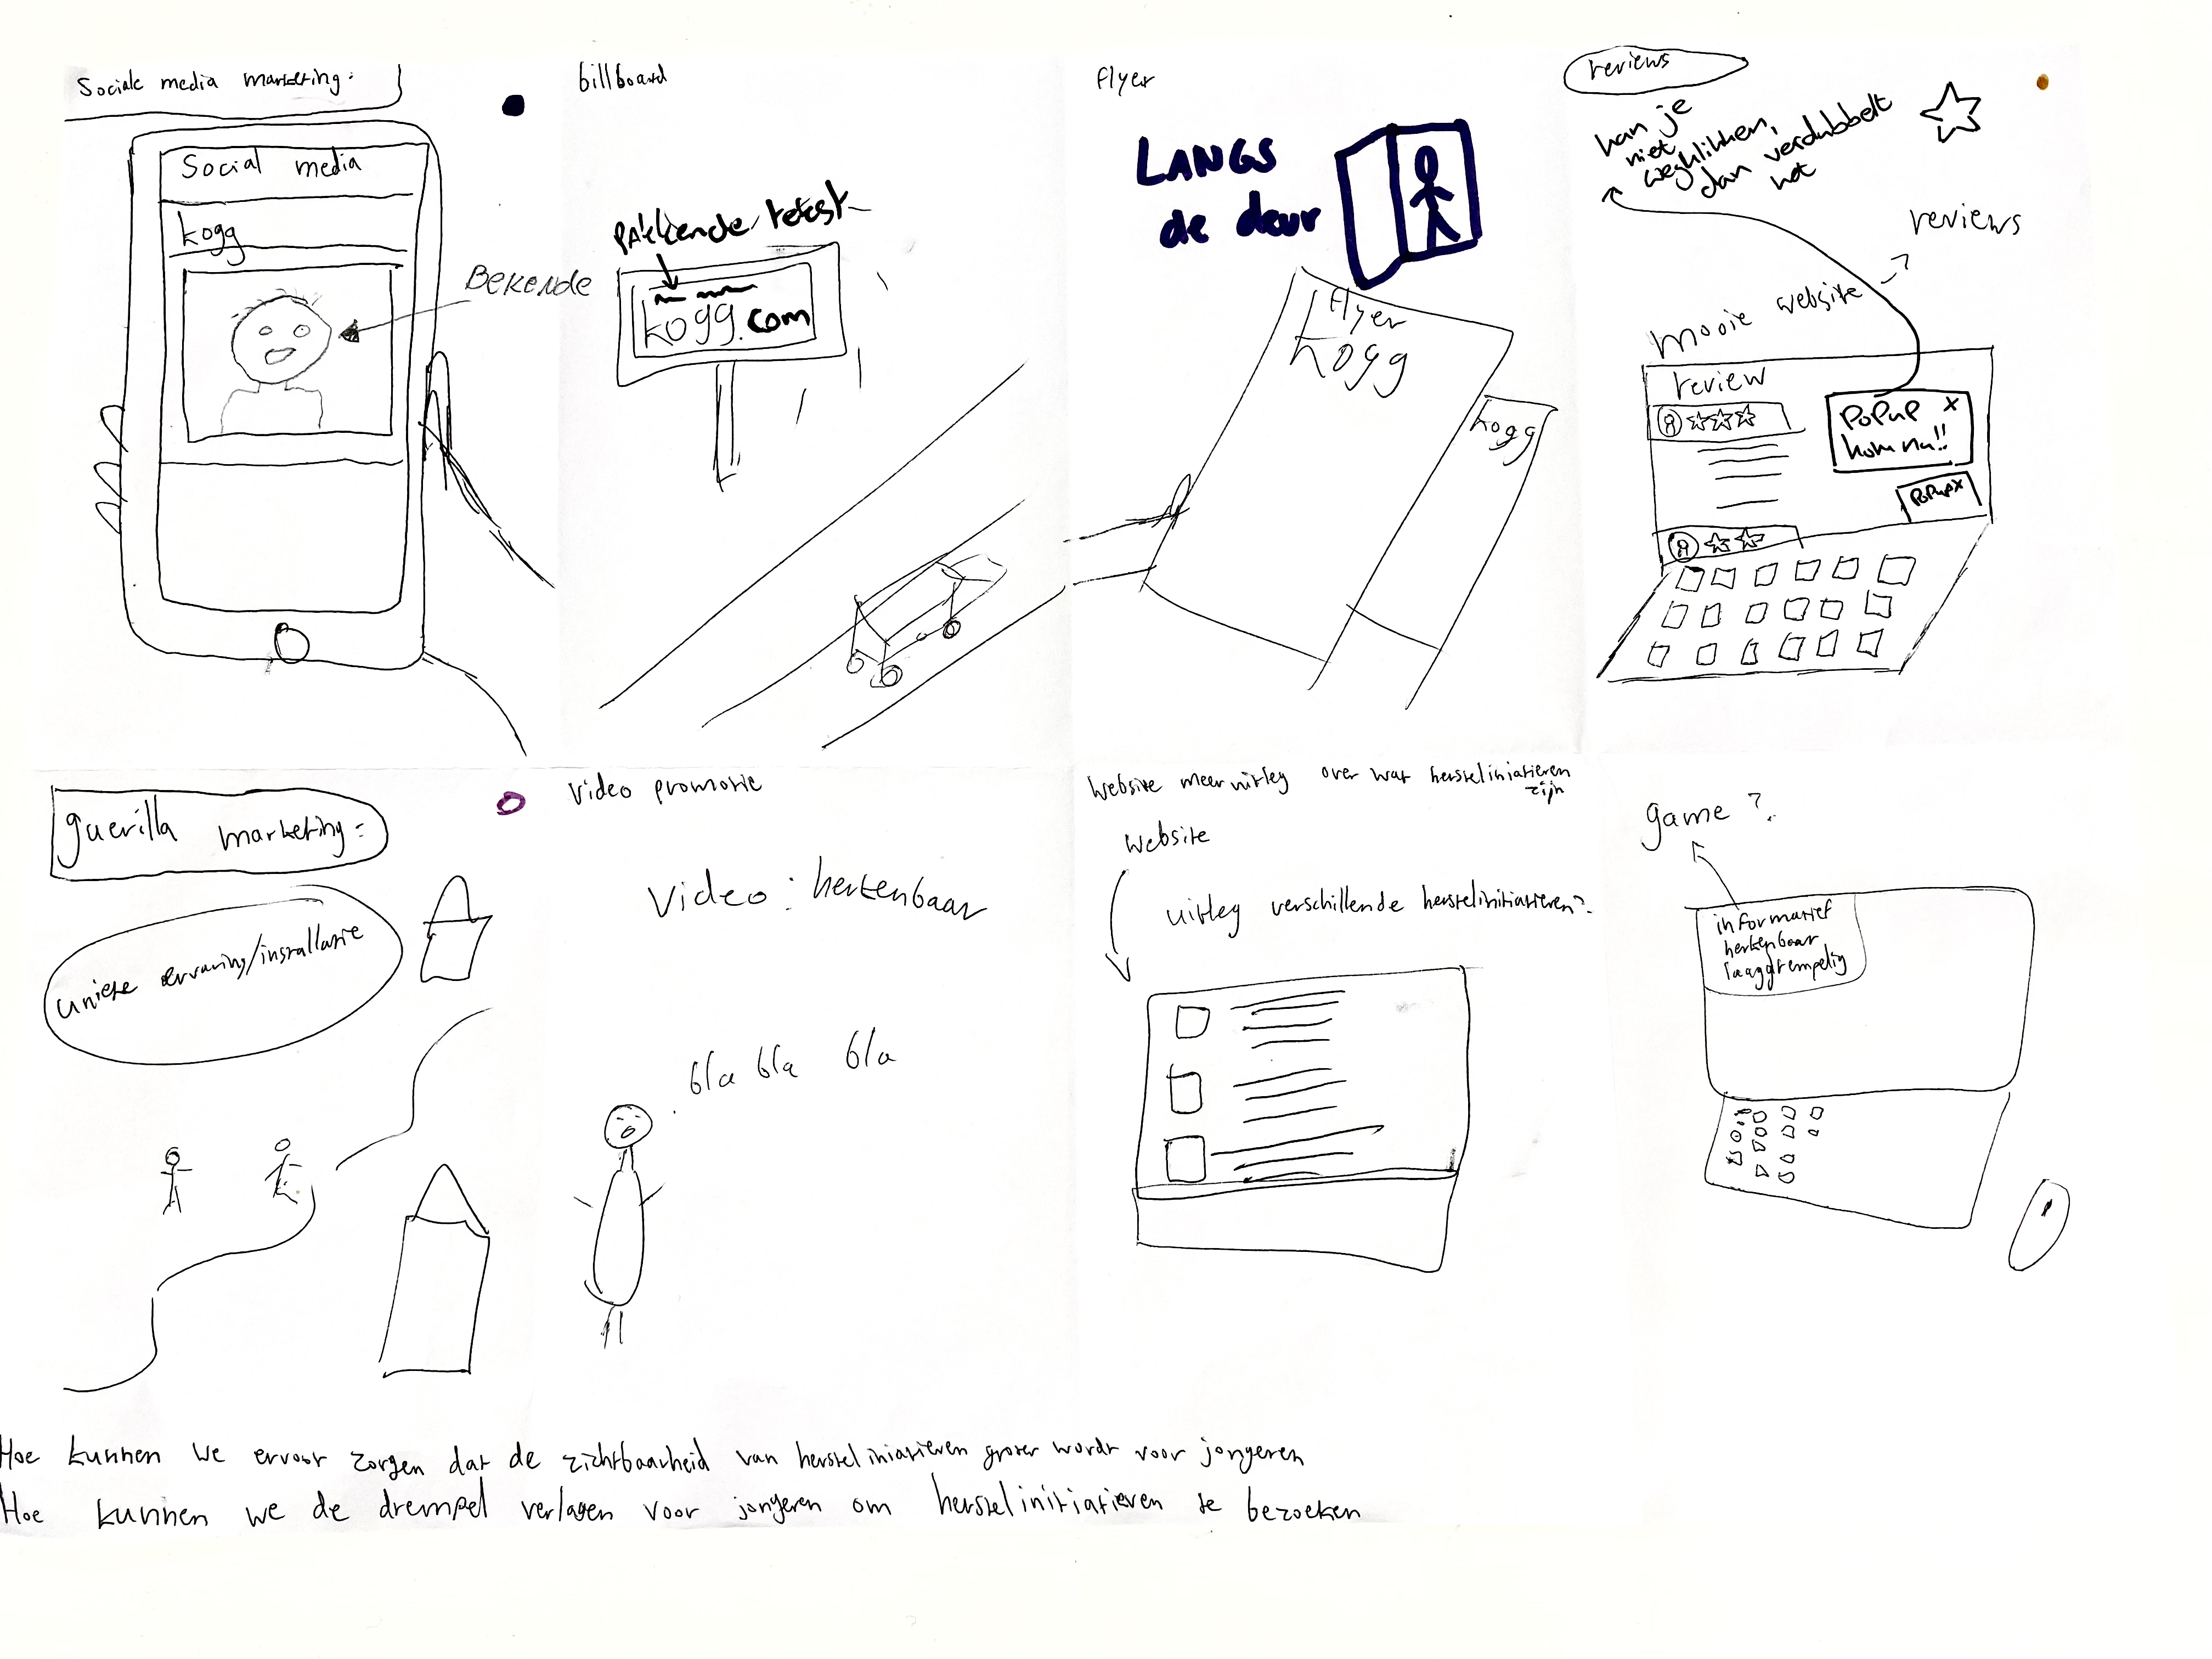 Sociale media marketing:
Social media
kogg
BEKENDE
billboard
PAkkende tekst
kogg.com
flyer
LANGS
de deur
flyer
kogg
kogg
reviews
kan je
niet
wegklikken,
dan verdubbelt
het
reviews
mooie website
review
PoPuP x
kom nu!!
PoPuP x
guerilla marketing:
unieke ervaring/installatie
Video promotie
Video: herkenbaar
bla bla bla
Website meer uitleg over wat hersteliniatieven
zijn
website
uitleg verschillende herstelinitiatieven?
game?
informatief
herkenbaar
laagdrempelig
Hoe kunnen we ervoor zorgen dat de zichtbaarheid van hersteliniatieven groter wordt voor jongeren
Hoe kunnen we de drempel verlagen voor jongeren om herstelinitiatieven te bezoeken